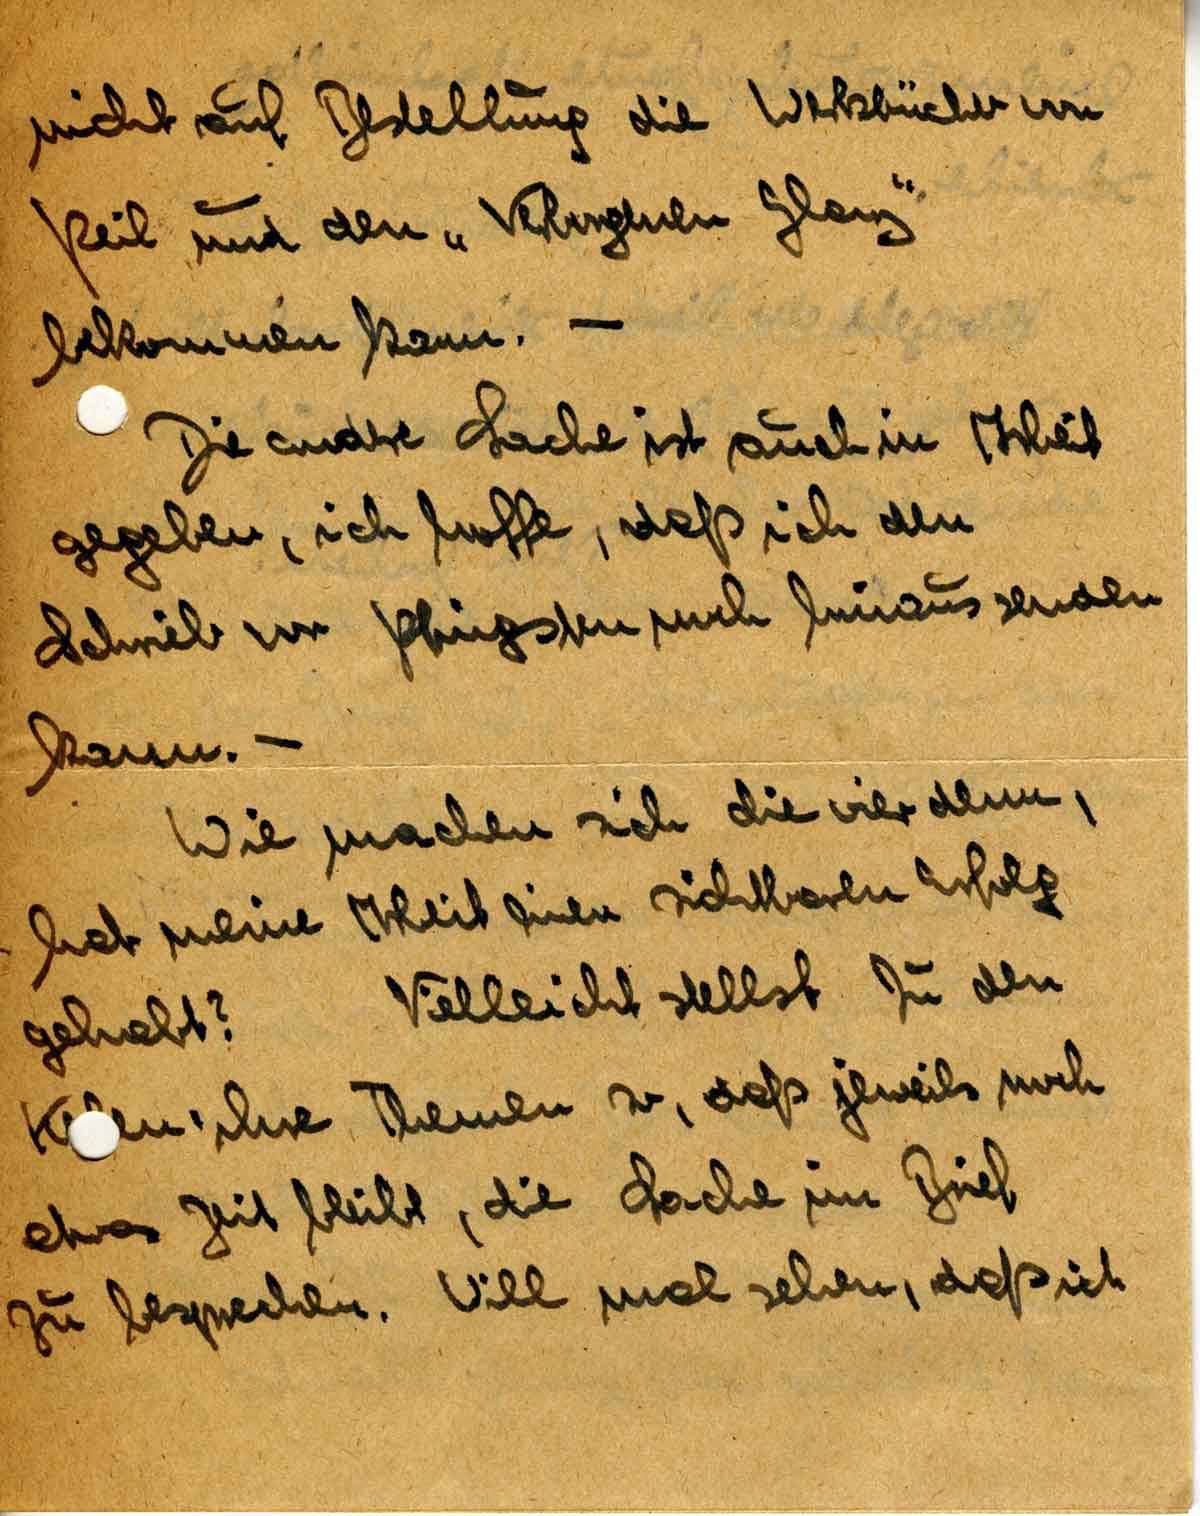 nicht auf Bestellung die Werkbücher von
Keil und den „Verborgenen Glanz"
bekommen kann. —
Die andere Sache ist auch in Arbeit
gegeben, ich hoffe, daß ich den
Schrieb vor Pfingsten noch hinaussenden
kann. —
Wie machen sich die vier denn,
hat meine Arbeit einen sichtbaren Erfolg
gehabt? Vielleicht stellst Du den
ihre Themen so, daß jeweils noch
etwas Zeit bleibt, die Sache im Brief
zu besprechen. Will mal sehen, daß ich